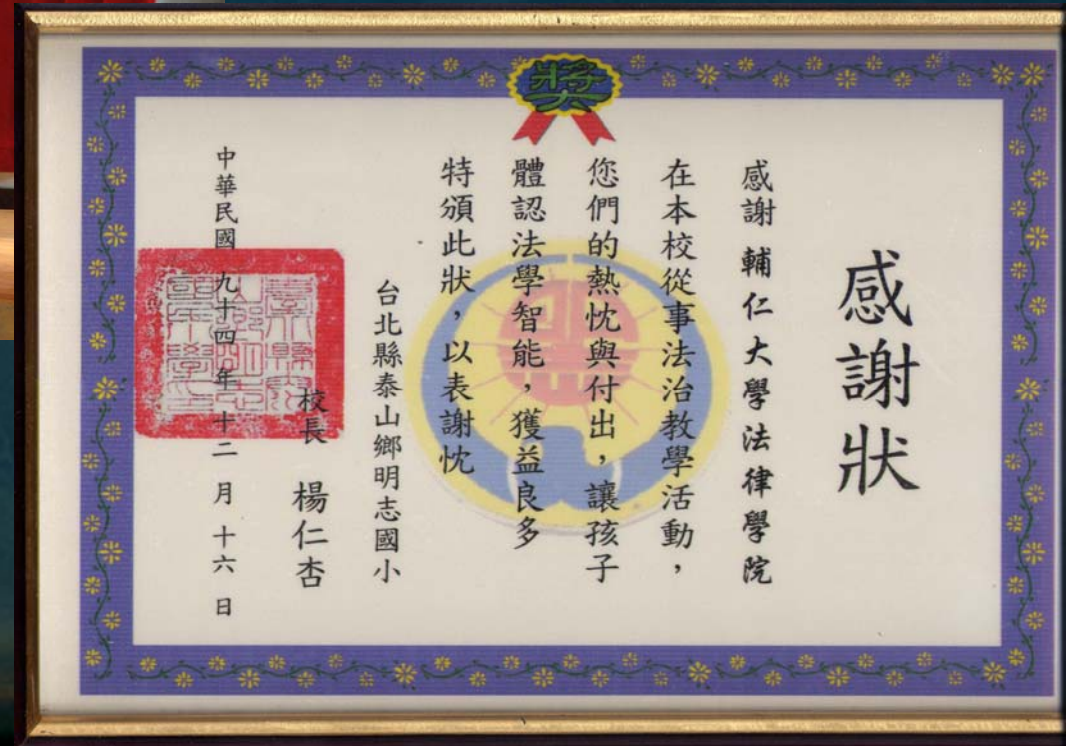 獎
感謝狀
感謝 輔仁大學法律學院
在本校從事法治教學活動，
您們的熱忱與付出，讓孩子
體認法學智能，獲益良多
特頒此狀，以表謝忱
台北縣泰山鄉明志國小
校長 楊仁杏
中華民國 九十四 年 十二 月 十六 日